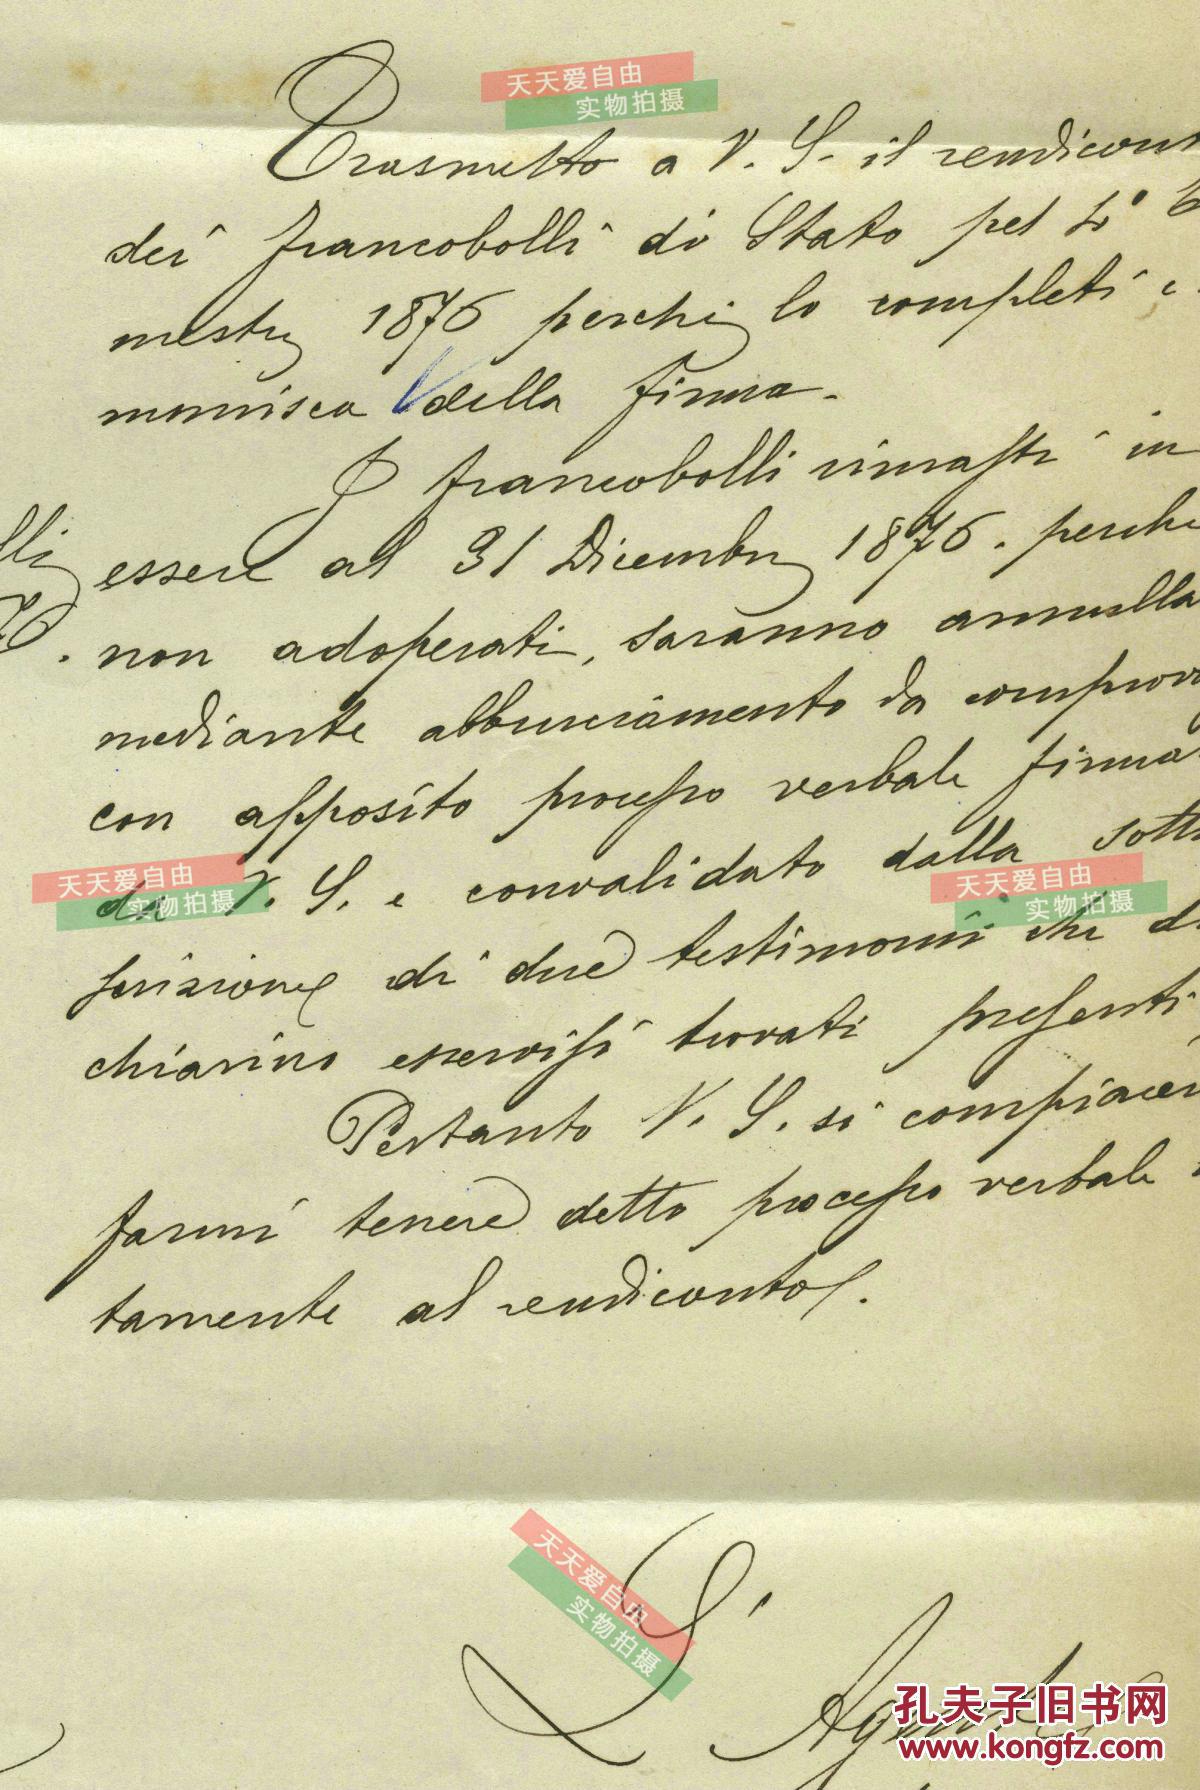 天天爱自由
实物拍摄
Trasmetto a V. S. il rendicont
dei francobolli di Stato pel 4°
mestre 1876 perchè lo completi e
munisca della firma.
I francobolli rimasti in
essere al 31 Dicembre 1876. perchè
non adoperati, saranno annulla
mediante abbruciamento da comprov
con apposito processo verbale firma
天天爱自由
实物拍摄
天天爱自由
实物拍摄
da V. S. e convalidato dalla sotto
scrizione di due testimoni che di
chiarino esservisi trovati presenti
Pertanto V. S. si compiacer
farmi tenere detto processo verbale
tamente al rendiconto.
天天爱自由
实物拍摄
L' Agente
孔夫子旧书网
www.kongfz.com